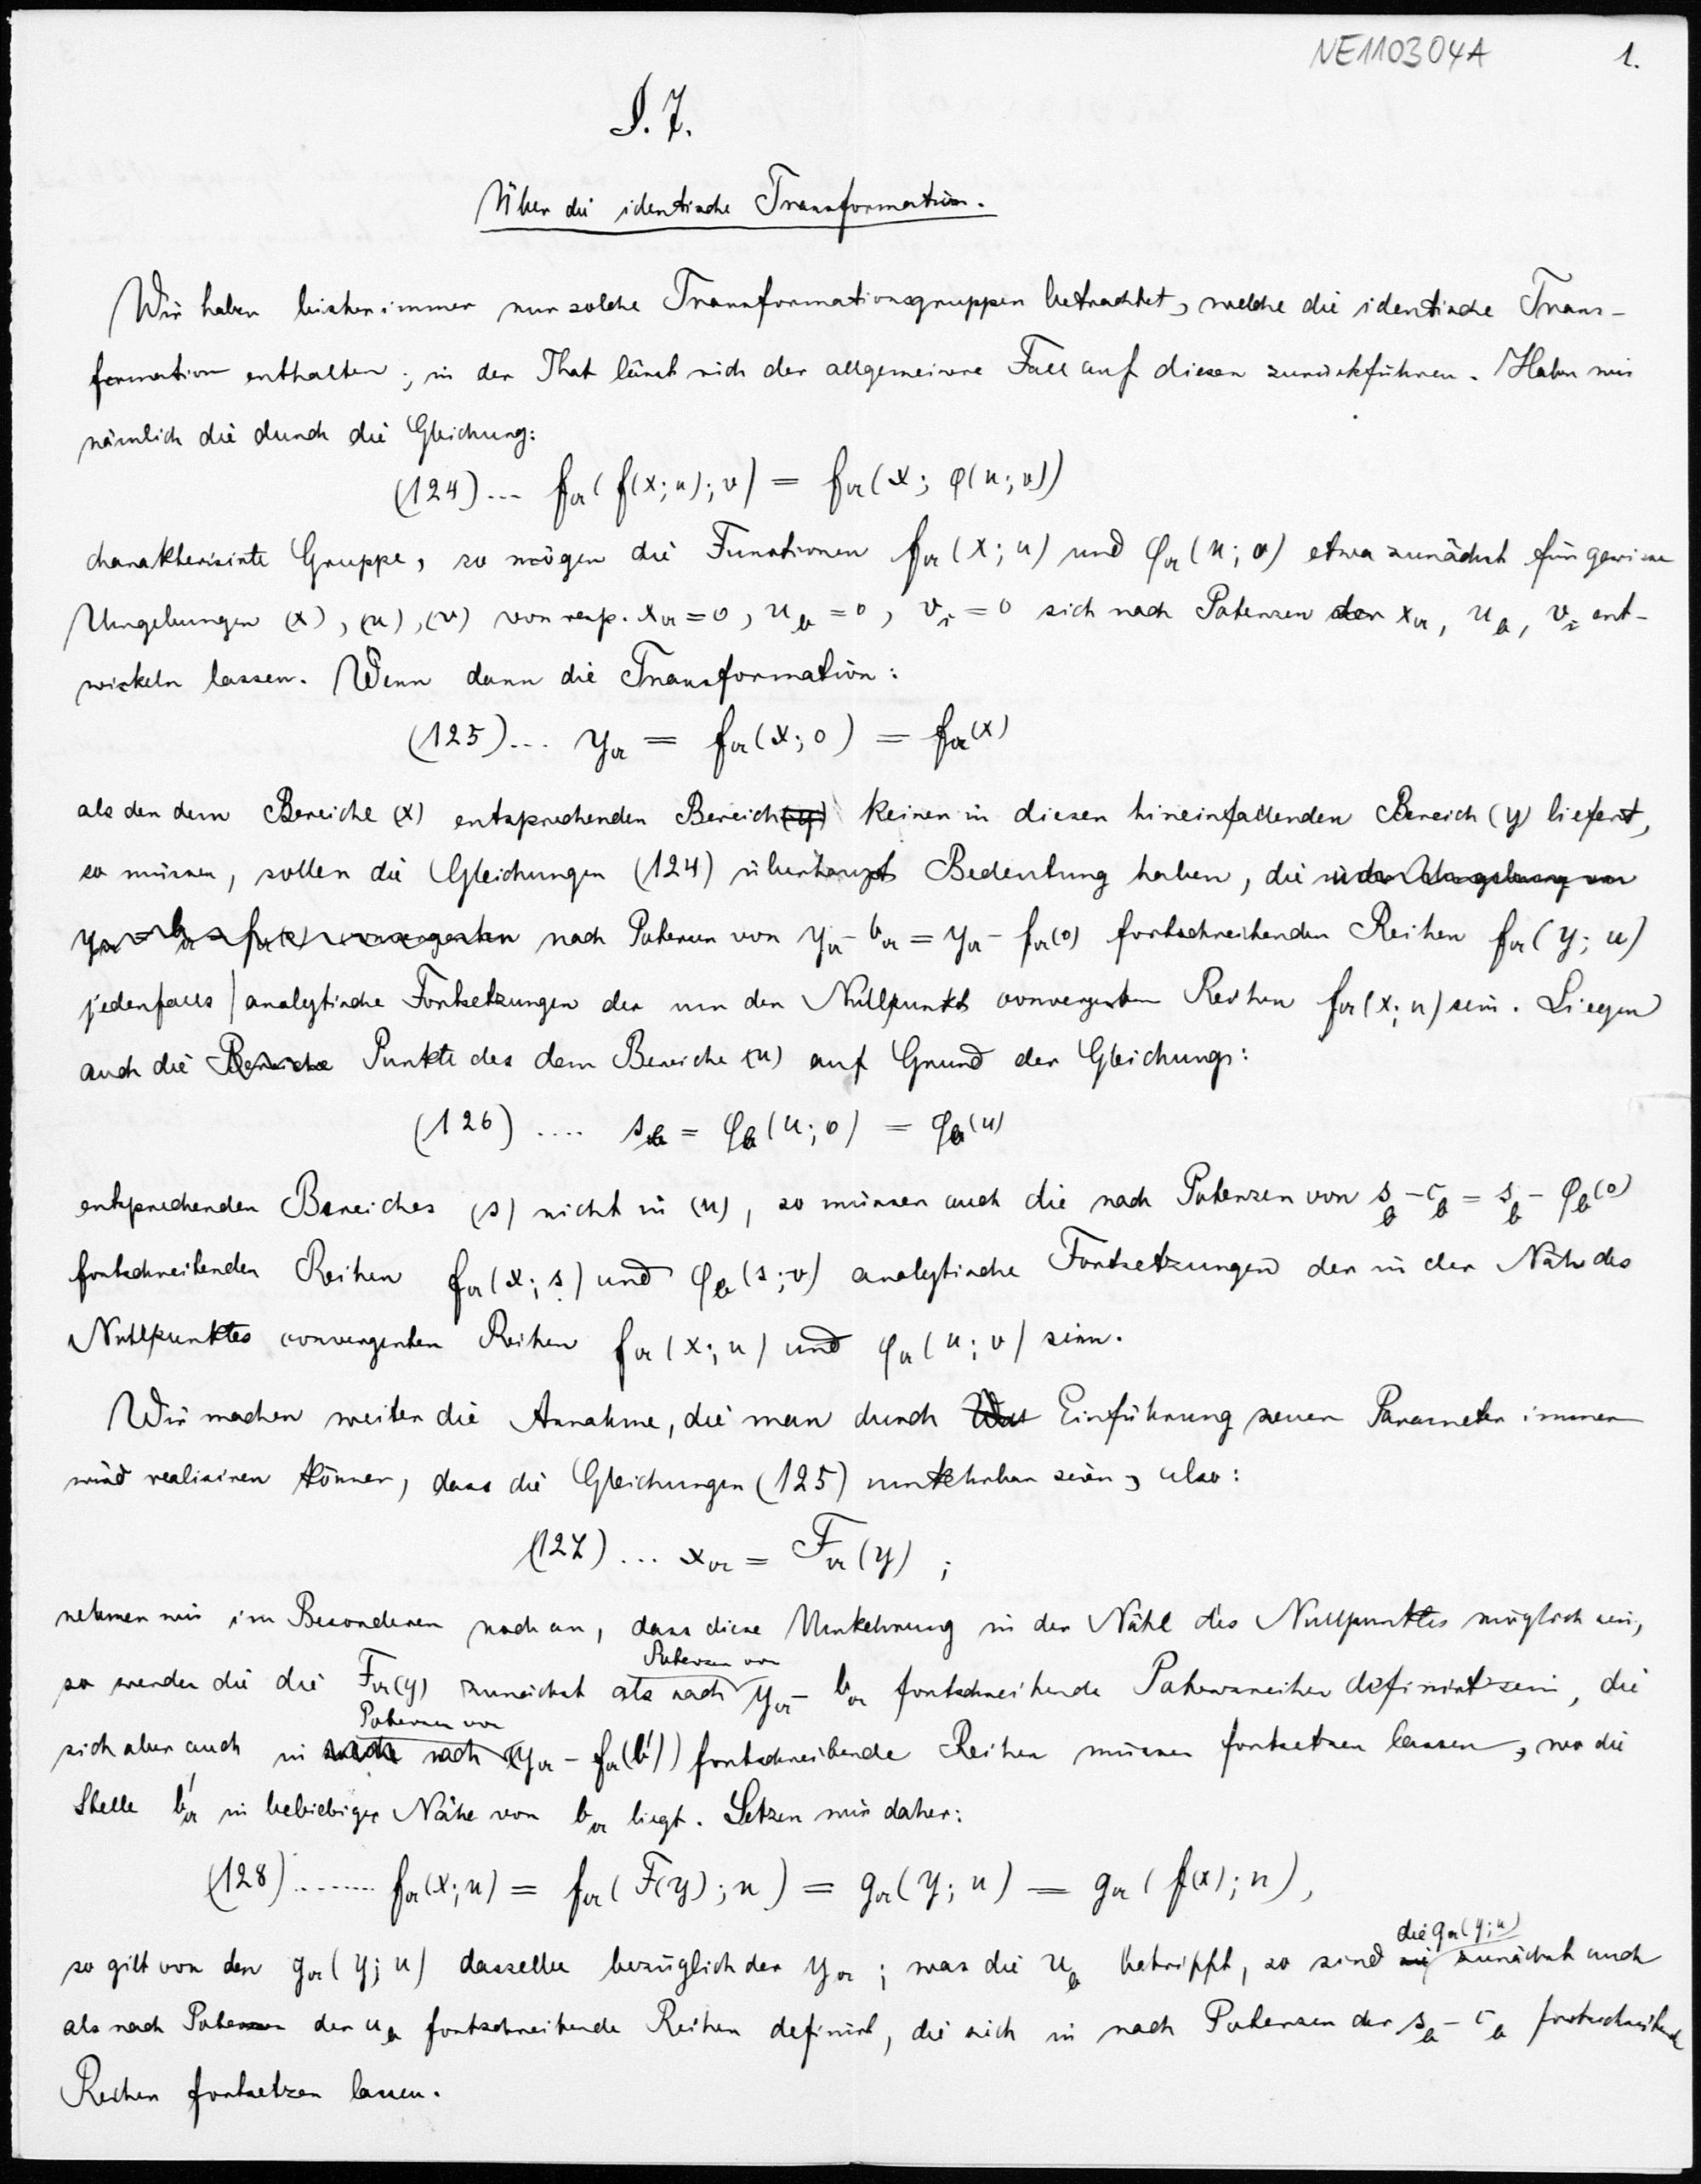 NE110304A 1.
§. 7.
Über die identische Transformation.
Wir haben bisher immer nur solche Transformationsgruppen betrachtet, welche die identische Trans-
formation enthalten; in der That lässt sich der allgemeinere Fall auf diesen zurückführen. Haben wir
nämlich die durch die Gleichung:
(124)... fα(f(x;u);v) = fα(x; φ(u;v))
charakterisirte Gruppe, so mögen die Functionen fα(x;u) und φα(u;v) etwa zunächst für gewisse
Umgebungen (x), (u), (v) von resp. xα=0, u_b=0, v_i=0 sich nach Potenzen der xα, u_b, v_i ent-
wickeln lassen. Wenn dann die Transformation:
(125)... yα = fα(x;0) = fα(x)
als den dem Bereiche (x) entsprechenden Bereich (y) keinen in diesen hineinfallenden Bereich (y) liefert,
so müssen, sollen die Gleichungen (124) überhaupt Bedeutung haben, die in der Umgebung von
nach Potenzen von yα - bα = yα - fα(0) fortschreitenden Reihen fα(y;u)
jedenfalls | analytische Fortsetzungen der um den Nullpunkt convergenten Reihen fα(x;u) sein. Liegen
auch die Bereiche Punkte des dem Bereiche (u) auf Grund der Gleichungs:
(126).... s_b = φ_b(u;0) = φ_b(u)
entsprechenden Bereiches (s) nicht in (u), so müssen auch die nach Potenzen von s_b - c_b = s_b - φ_b(0)
fortschreitenden Reihen fα(x;s) und φ_b(s;v) analytische Fortsetzungen der in der Nähe des
Nullpunktes convergenten Reihen fα(x;u) und φα(u;v) sein.
Wir machen weiter die Annahme, die man durch Einführung neuer Parameter immer
wird realisiren können, dass die Gleichungen (125) umkehrbar seien, also:
(127)... xα = Fα(y);
nehmen wir im Besonderen noch an, dass diese Umkehrung in der Nähe des Nullpunktes möglich sei,
so werden die die Fα(y) zunächst als nach Potenzen von yα - bα fortschreitende Potenzreihen definirt sein, die
sich aber auch in nach Potenzen von (yα - fα(b')) fortschreibende Reihen müssen fortsetzen lassen, wo die
Stelle b'α in beliebiger Nähe von bα liegt. Setzen wir daher:
(128)....... fα(x;u) = fα(F(y);u) = gα(y;u) = gα(f(x);u),
so gilt von den gα(y;u) dasselbe bezüglich der yα; was die u_b betrifft, so sind die gα(y;u) zunächst auch
als nach Potenzen der u_b fortschreitende Reihen definirt, die sich in nach Potenzen der s_b - c_b fortschreitende
Reihen fortsetzen lassen.